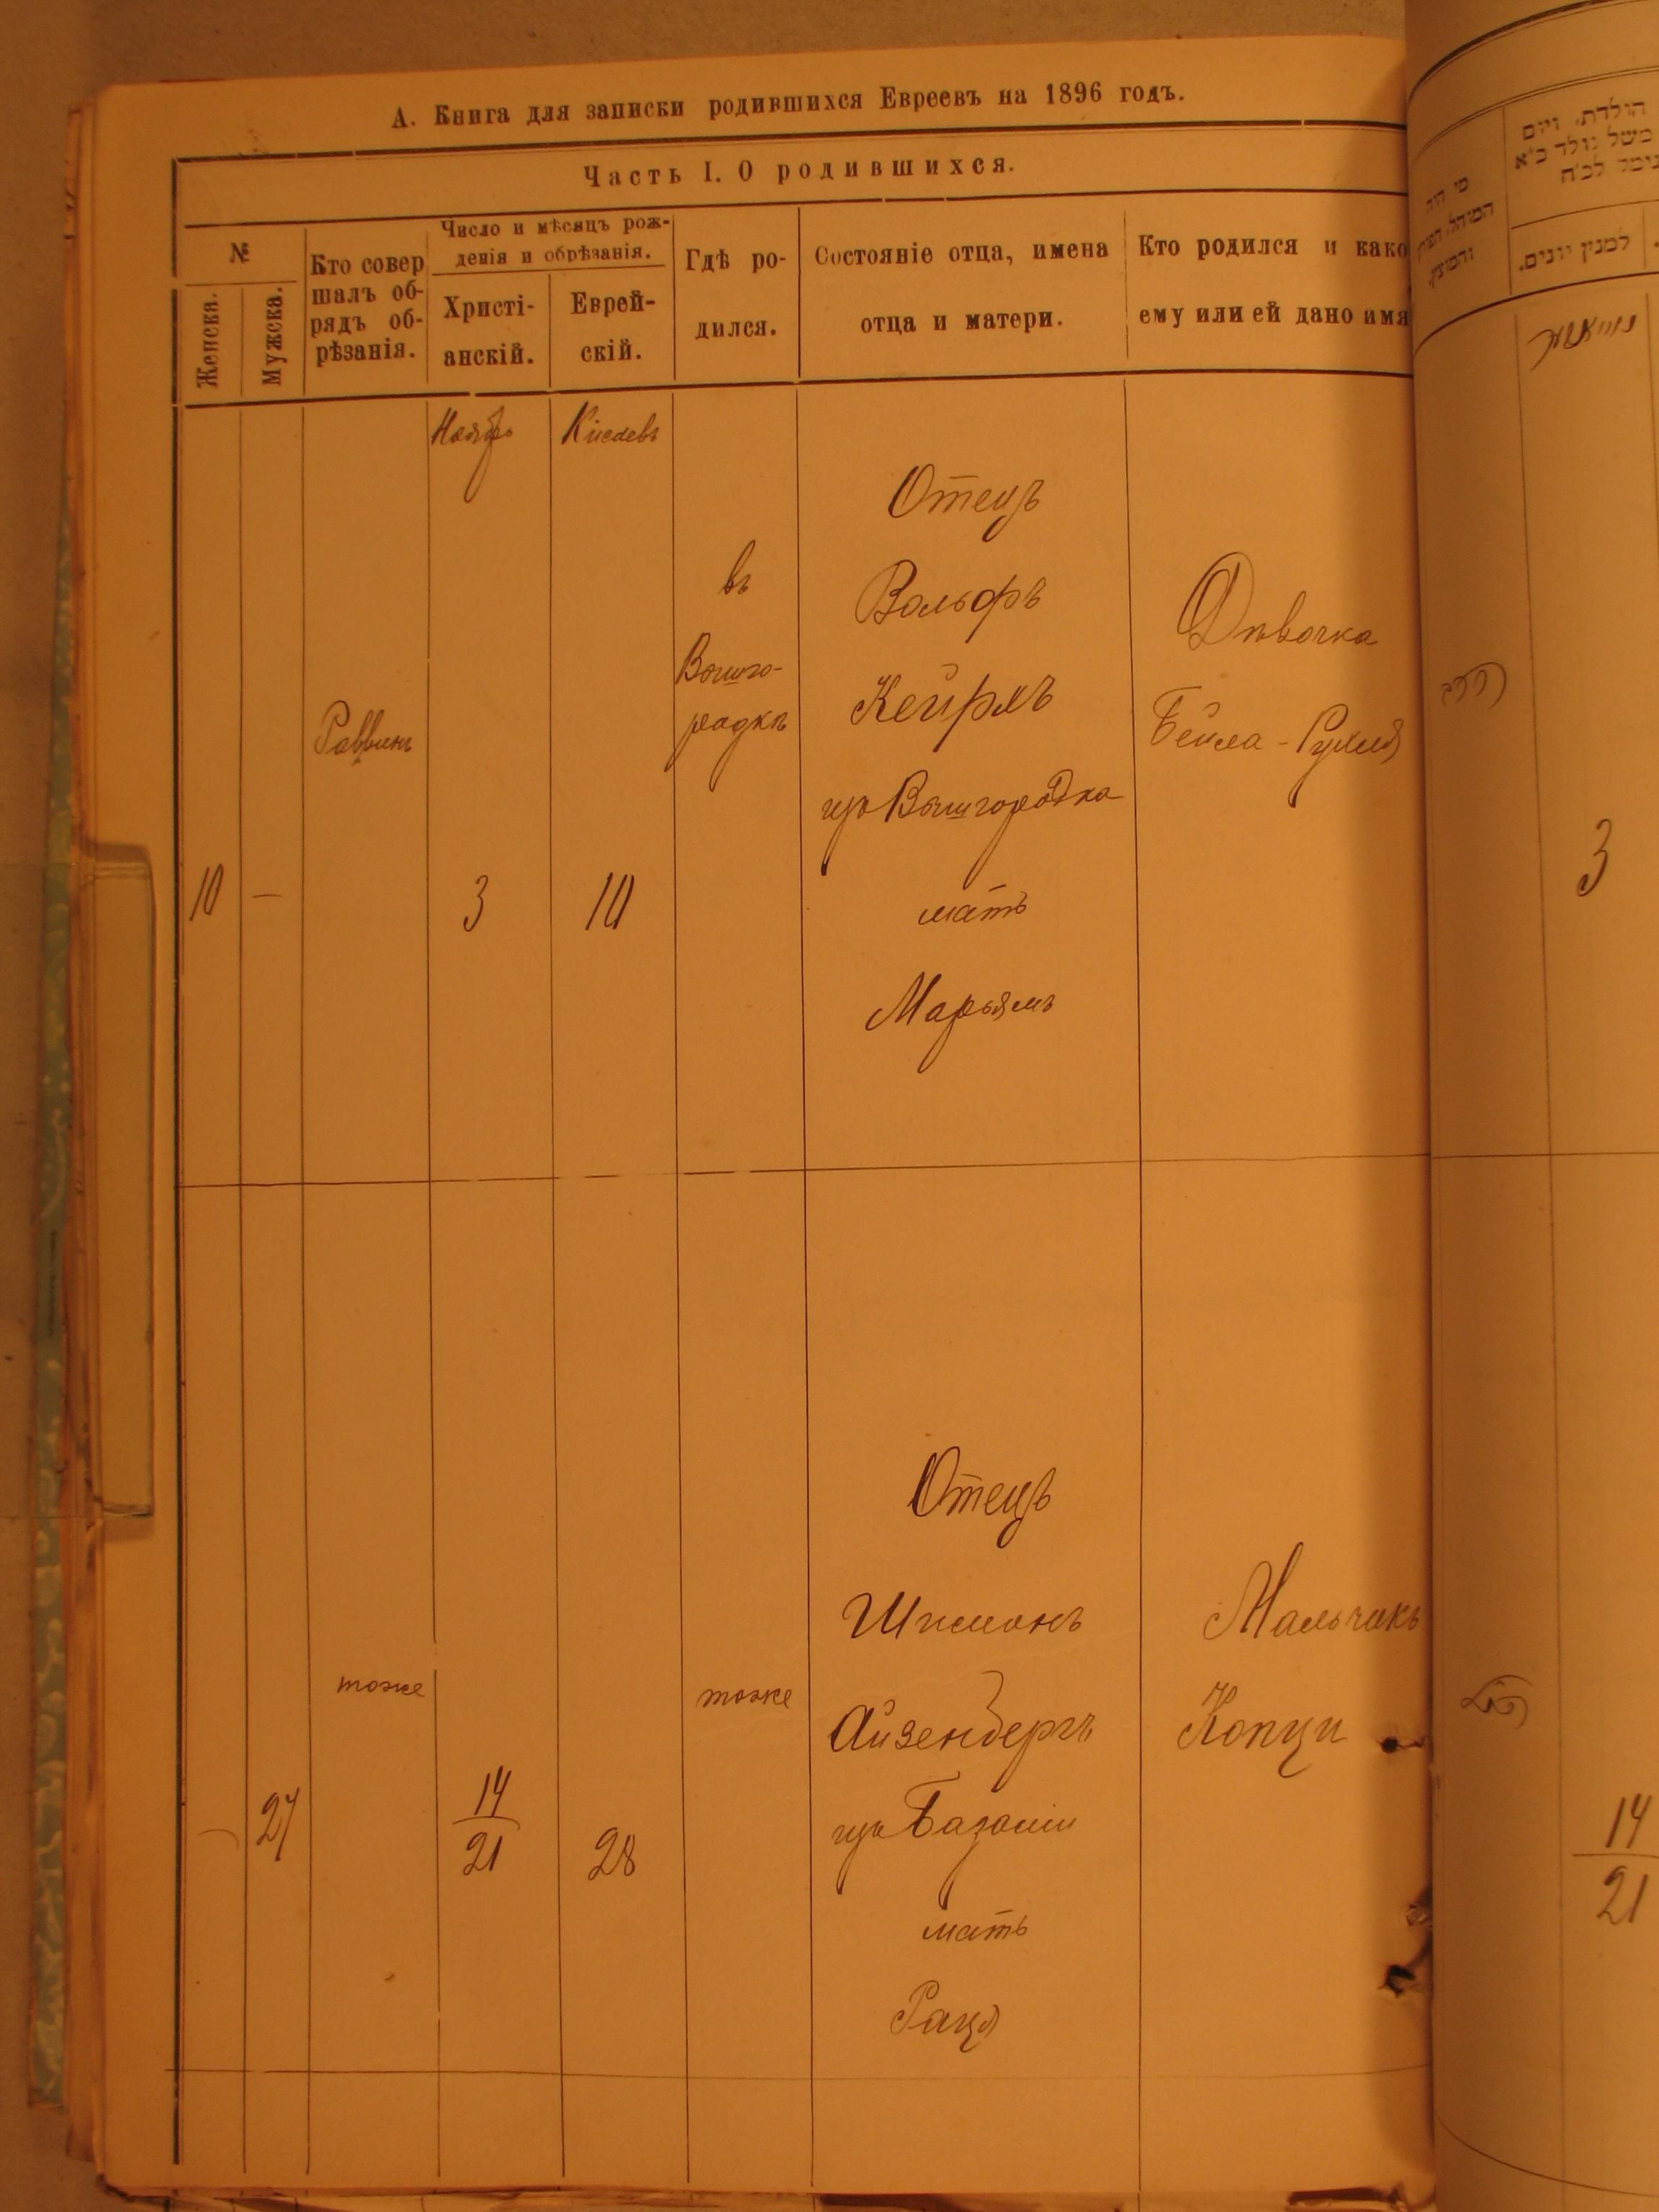 А. Книга для записки родившихся Евреевъ на 1896 годъ.
Часть I. О родившихся.
№
Женска.
Мужска.
Кто совер
шалъ об-
рядъ об-
рѣзанія.
Число и мѣсяцъ рож-
денія и обрѣзанія.
Христі-
анскій.
Еврей-
скій.
Гдѣ ро-
дился.
Состояніе отца, имена
отца и матери.
Кто родился и како
ему или ей дано имя
Ноябрь
Кислевъ
10
—
Раввинъ
3
10
въ
Вышго-
родкѣ
Отецъ
Вольфъ
Кейрлъ
изъ Вышгородка
мать
Марьямъ
Дѣвочка
Бейла-Рухля
27
тоже
14
21
28
тоже
Отецъ
Шимонъ
Айзенбергъ
изъ Базаліи
мать
Раця
Мальчикъ
מי היה
המוהל
הולדת ויום
למנין יונים.
3
14
21